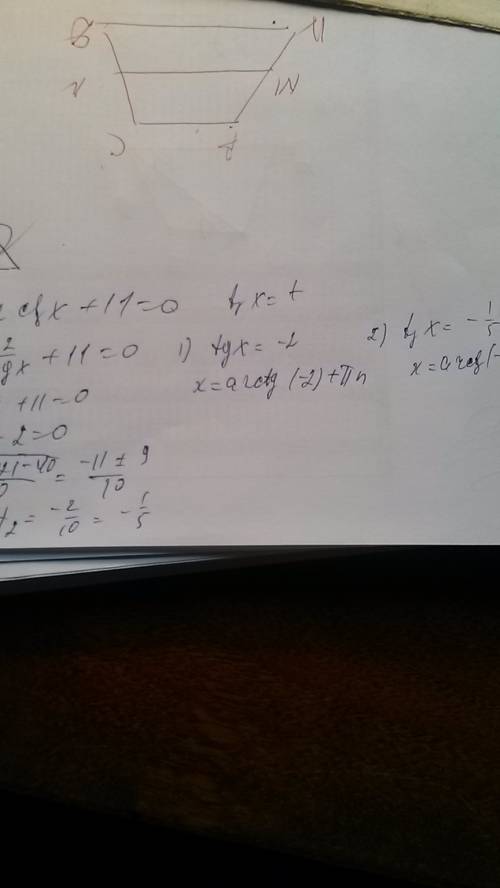 B
M
C
ctg x + 11 = 0 tg x = t
2/tg x + 11 = 0 1) tg x = -2 2) tg x = -1/5
+ 11 = 0 x = arctg (-2) + πn x = arctg (-
2 = 0
21-40 = -11 ± 9 / 10
t2 = -2/10 = -1/5